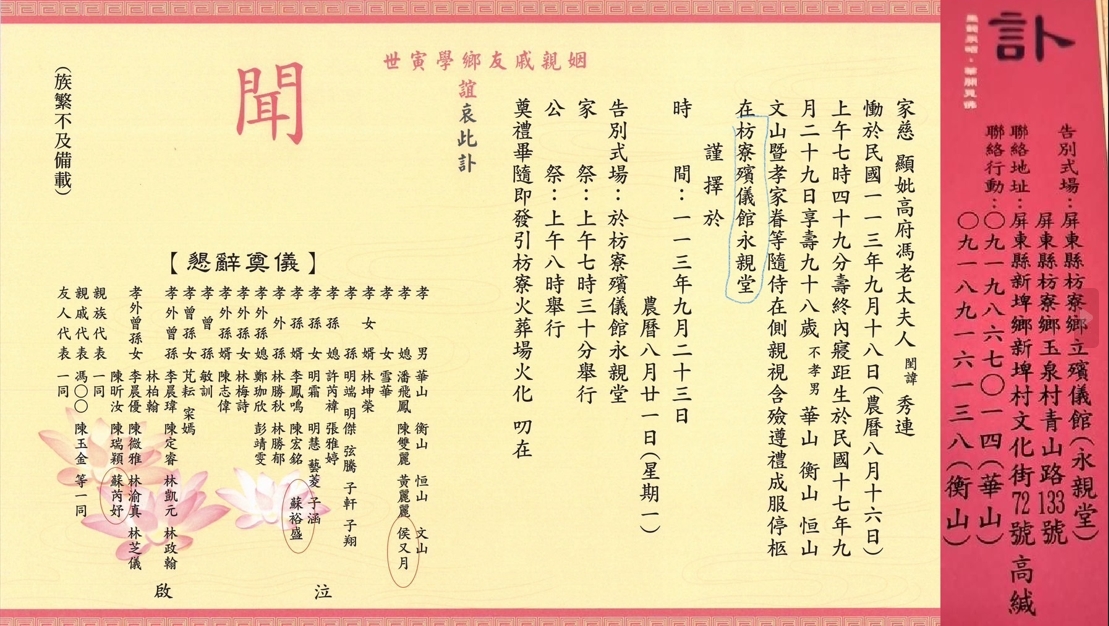 訃
告別式場:屏東縣枋寮鄉立殯儀館(永親堂)
屏東縣枋寮鄉玉泉村青山路133號
聯絡地址:屏東縣新埤鄉新埤村文化街72號 高緘
聯絡行動:〇九一九八六七〇一四(華山)
〇九一八九一六一三八(衡山)
家慈 顯妣高府馮老太夫人 閨諱 秀連
慟於民國一一三年九月十八日(農曆八月十六日)
上午七時四十九分壽終內寢距生於民國十七年九
月二十九日享壽九十八歲 不孝男 華山 衡山 恒山
文山暨孝家眷等隨侍在側親視含殮遵禮成服停柩
在枋寮殯儀館永親堂
謹擇於
時 間:一一三年九月二十三日
農曆八月廿一日(星期一)
告別式場:於枋寮殯儀館永親堂
家 祭:上午七時三十分舉行
公 祭:上午八時舉行
奠禮畢隨即發引枋寮火葬場火化 叨在
姻親戚友鄉學寅世
誼哀此訃
聞
(族繁不及備載)
【懇辭奠儀】
孝男 華山 衡山 恒山 文山
孝媳 潘飛鳳 陳雙麗 黃麗麗 侯又月
孝女 雪華
孝女婿 林坤榮
孝孫 明端 明傑 弦騰 子軒 子翔
孝孫媳 許芮禕 張雅婷
孝孫女 明霜 明慧 藝菱 子涵
孝孫婿 李鳳鳴 陳宏銘 蘇裕盛
孝外孫 林勝秋 林勝郁
孝外孫媳 鄭枷欣 彭靖雯
孝外孫女 林梅詩
孝外孫婿 陳志偉
孝曾孫 敏訓
孝曾孫女 芃耘 寀嫣
孝外曾孫 李晨瑋 陳定睿 林凱元 林政翰
林柏翰
孝外曾孫女 李晨優 陳微雅 林渝真 林芝儀
陳昕汝 陳瑞穎 蘇芮妤
親族代表 一同
親戚代表 馮〇〇 陳玉金 等一同
友人代表 一同
泣 啟